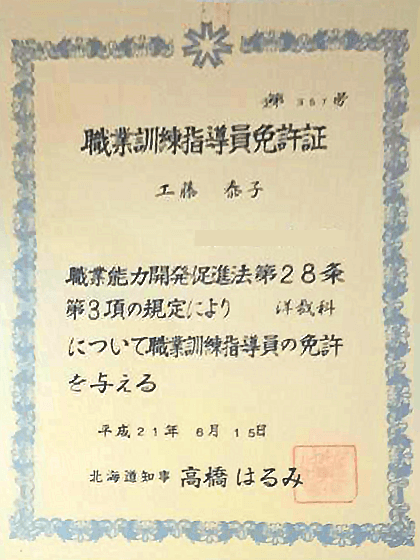 第 357号
職業訓練指導員免許証
工藤 泰子
職業能力開発促進法第28条
第3項の規定により 洋裁科
について職業訓練指導員の免許
を与える
平成21年 6月 15日
北海道知事 高橋はるみ